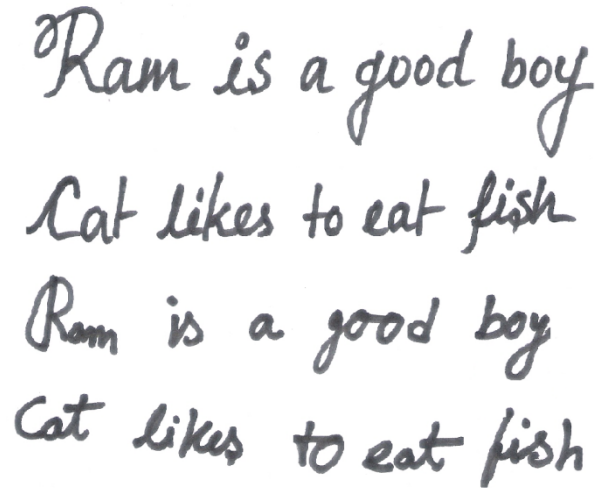 Ram is a good boy
Cat likes to eat fish
Ram is a good boy
Cat likes to eat fish